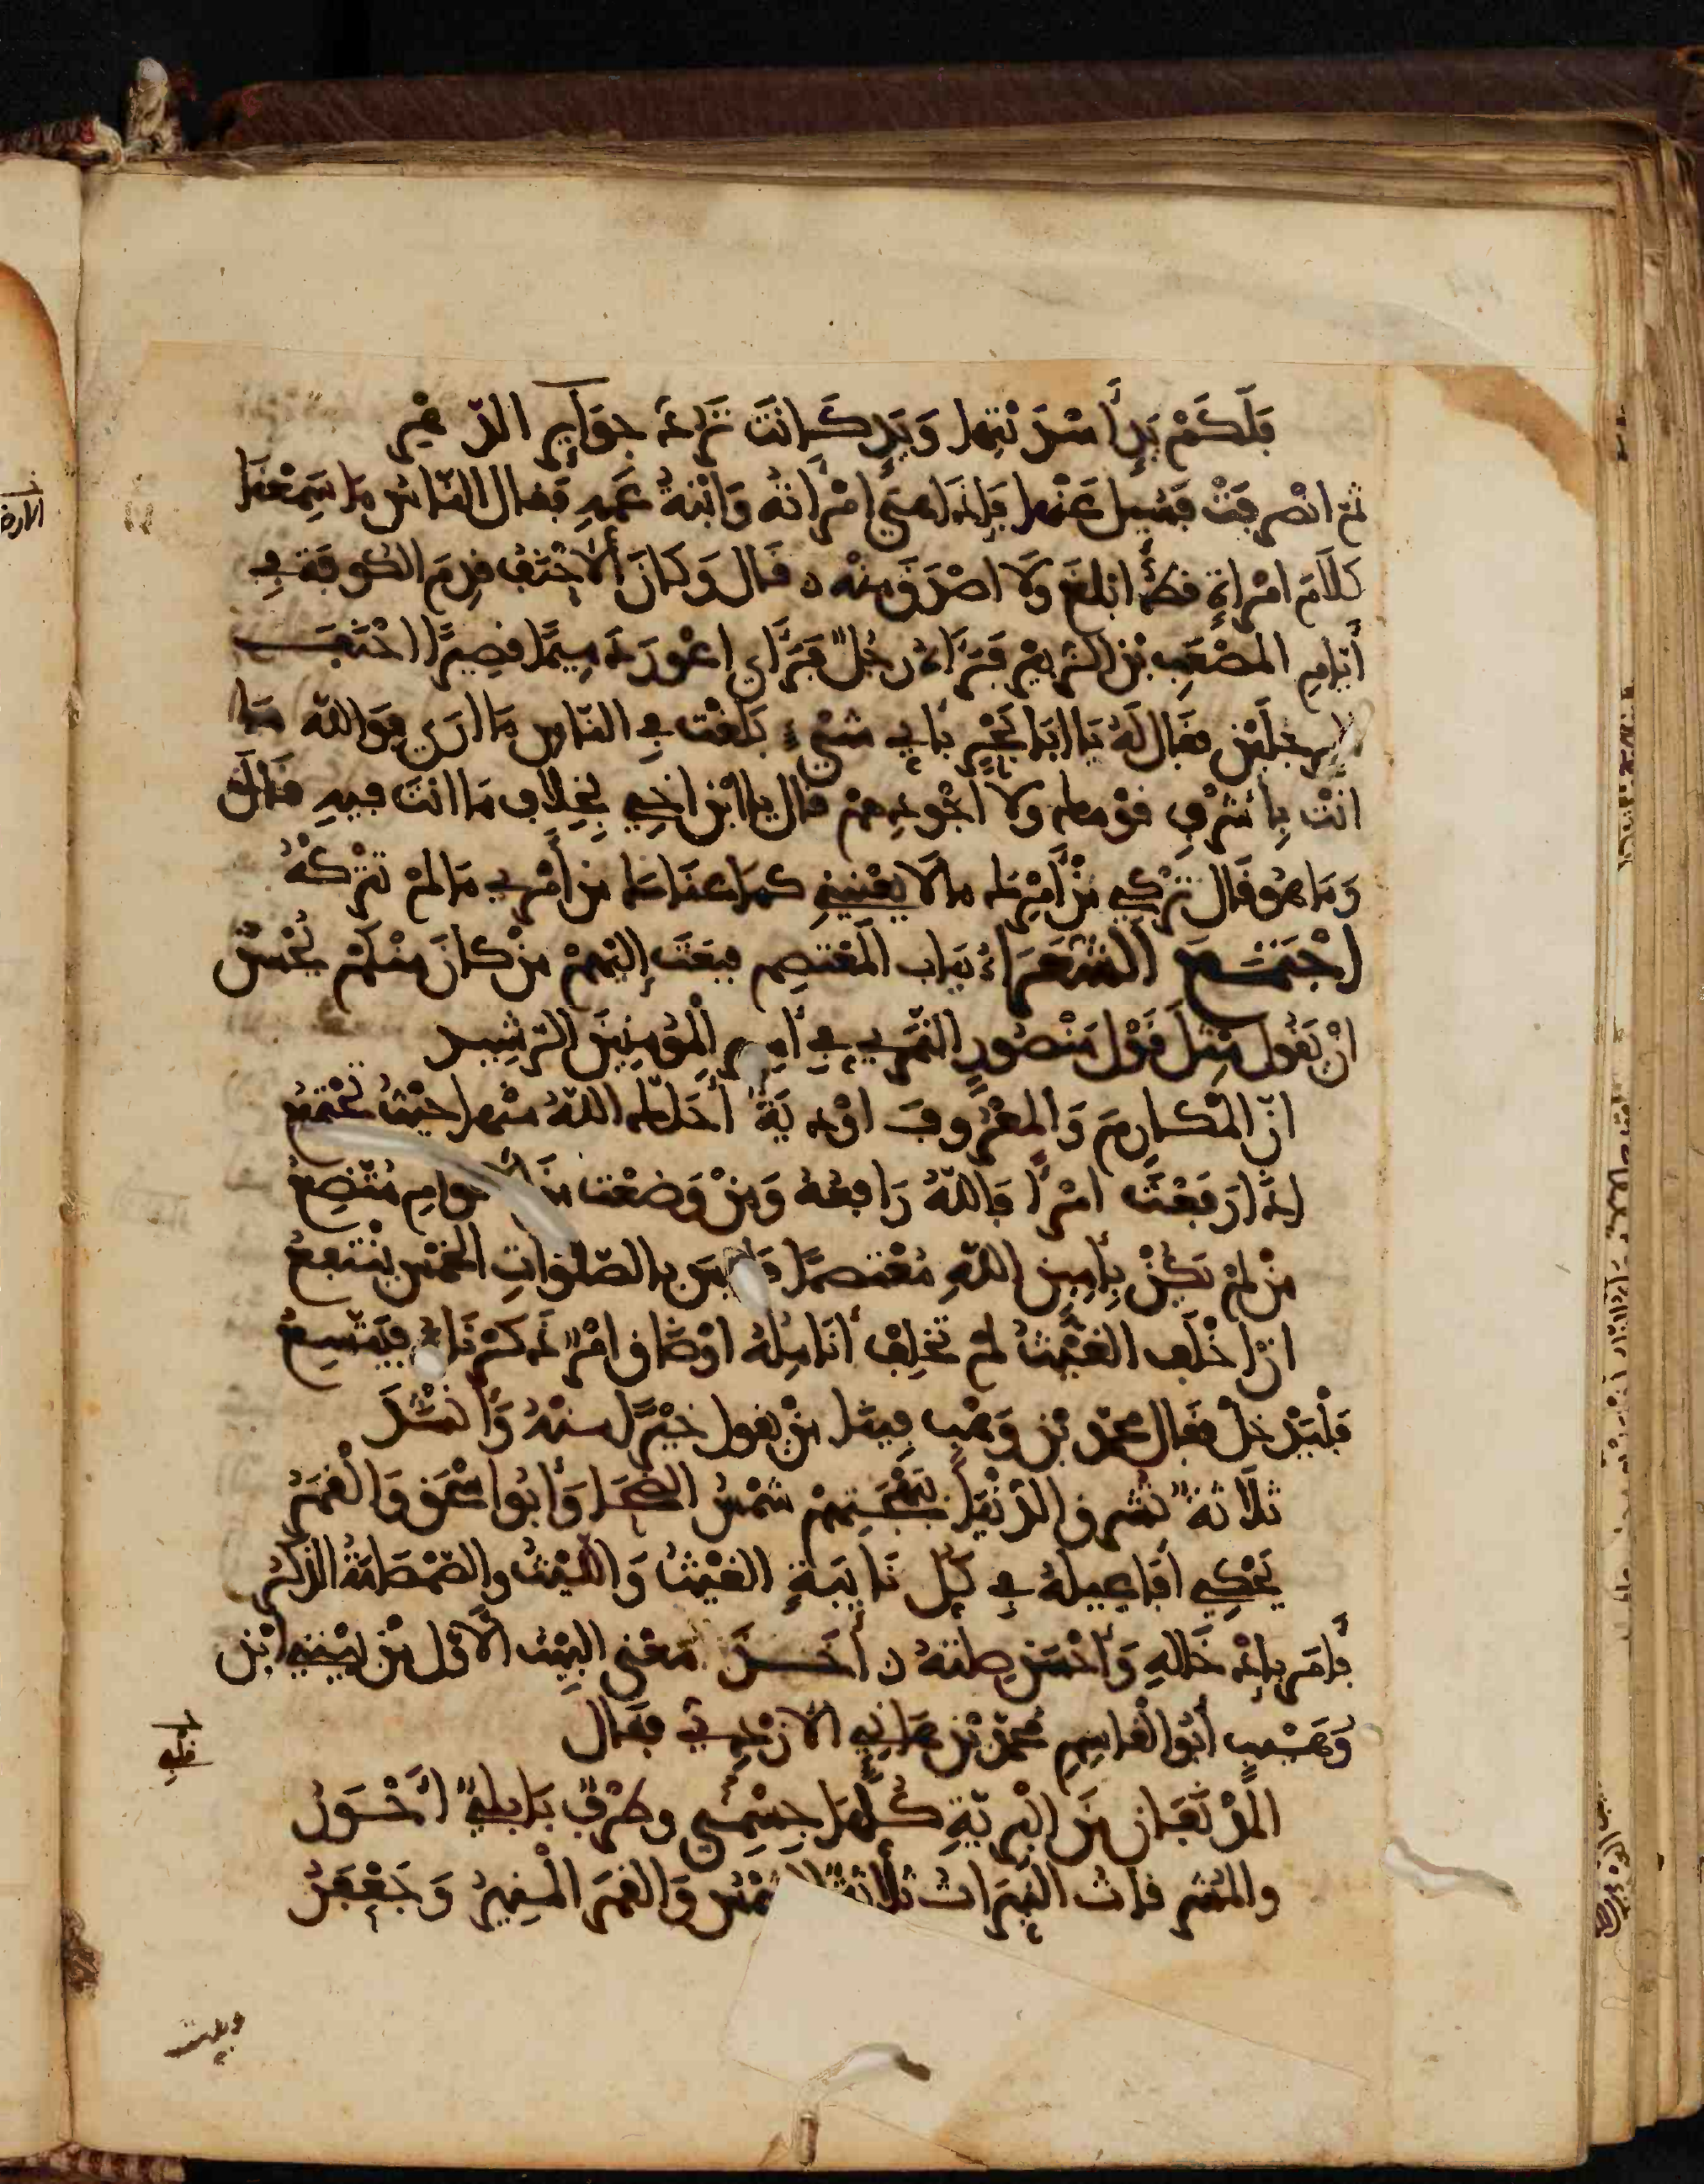 فَلَكَمْ يَدٍ أَسْدَيْتَهَا وَيَدٍ كَانَتْ تَرُدُّ جَوَايِرَ الدّهْرِ
ثم انْصرفَتْ فسيل عَنْها فإذا هي امْرأتهُ وَابْنَةُ عمّهِ فقال النّاسُ ما سَمِعْنَا
كلامَ امْرأةٍ قطّ أبلغَ ولا اصْدَقَ منْه قال وَكانَ الأحْنَفُ قدِمَ الكوفة في
أيّامِ المُصْعَبِ بْنِ الزّبيْرِ فرآه رجُلٌ فرأى اعْورَ دَمِيمًا قصِيرًا احْنَفَ
الرجلَيْنِ فقال لَهُ يا ابَا بَحْرٍ بأي شيْءٍ بَلَغْت في النّاس مَا ارَى فوالله مَا
انْتَ بِأشْرفِ قوْمك ولا أجْودِهمْ قال يا ابْن اخي بخِلافِ مَا انتَ فيهِ قال
وَمَا هو قال تَرْكي مِنْ أمْرِك ما لا يَعْنيني كما عناك من أمْري مَا لمْ تتْركْهُ
اجْتَمَعَ الشُّعَرَاءُ بباب المُعْتصِم فبعَثَ إليْهِمْ مَنْ كانَ مِنْكمْ يُحْسنُ
انْ يَقُول مِثلَ قَوْل مَنْصُورٍ النّمَري في أمير المُؤمِنِينَ الرّشِيد
انّ المْكارِمَ وَالمعْرُوفَ اوْديَةٌ أحَلّك اللّهُ منْها حيْثُ تجْتمِعُ
إذَا رَفَعْتَ امْرأً فاللّهُ رَافعُهُ وَمَنْ وَضعْت منَ الأقوامِ مُتّضِعُ
مَنْ لمْ يَكُنْ بِأمِين اللّهِ مُعْتصمًا فَليْسَ بالصّلواتِ الخمْسِ ينْتفعُ
انْ اخْلَفَ الغيْثُ لمْ تُخلِفْ أنَامِلهُ اوْ ضَاقَ امْرٌ ذَكرْنَاهُ فيَتّسِعُ
فلْيَدْخلْ فقال محمّد بْن وَهْبٍ فِينَا مَنْ يقول خيْرًا منْهُ وَأنْشَدَ
ثَلاثةٌ تُشرِق الدّنْيَا بِبَهْجتِهِمْ شمْسُ الضّحَا وَأبُو اسْحق وَالْقمَرُ
يَحْكِي أفَاعِيلَهُ في كُلّ نَايبَةٍ الغَيْثُ وَاللّيْثُ والصّمْصَامَةُ الذّكَرُ
فأمَر بإدْخَالهِ وَأحْسَنَ صِلتَهُ أخَذَ مَعْنى البيْت الأوّل مِنْ بَيْتي ابْن
وَهَيْبٍ أبُو القاسِمِ محمّد بْن هَاني الأزْدِيّ فقال
المُدْنَفَانِ مِنَ البَريّةِ كلّهَا جِسْمِي وطرْفٌ بَابليٌّ أحْوَرُ
والمُشرِقاتُ النّيّرَاتُ ثَلاثةٌ الشّمْسُ وَالقمَرُ المُنِيرُ وَجَعْفَرُ